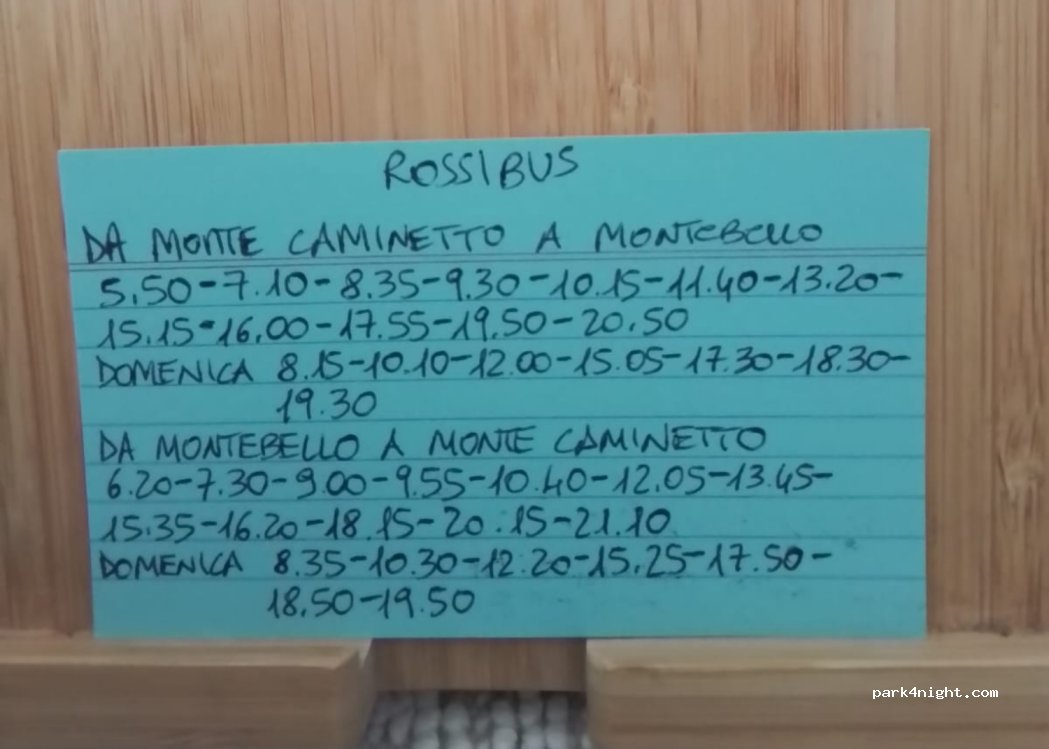 ROSSIBUS
DA MONTE CAMINETTO A MONTEBELLO
5.50-7.10-8.35-9.30-10.15-11.40-13.20-
15.15-16.00-17.55-19.50-20.50
DOMENICA 8.15-10.10-12.00-15.05-17.30-18.30-
19.30
DA MONTEBELLO A MONTE CAMINETTO
6.20-7.30-9.00-9.55-10.40-12.05-13.45-
15.35-16.20-18.15-20.15-21.10
DOMENICA 8.35-10.30-12.20-15.25-17.50-
18.50-19.50
park4night.com